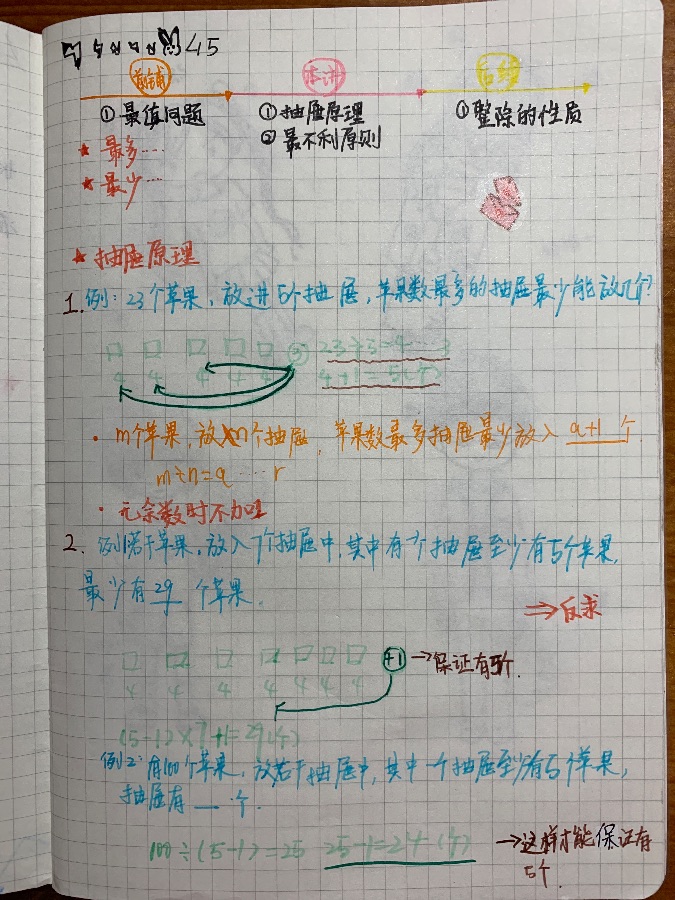 45
前铺 本讲 后续
① 最值问题 ① 抽屉原理 ① 整除的性质
★ 最多…… ② 最不利原则
★ 最少……
★ 抽屉原理
1. 例: 23个苹果, 放进5个抽屉, 苹果数最多的抽屉最少能放几个?
口 口 口 口 口 ③ 23÷5=4……3
4 4 4 4 4 4+1=5(个)
· m个苹果, 放入n个抽屉, 苹果数最多抽屉最少放入 a+1 个
m÷n=a……r
· 无余数时不加1
2. 例1: 若干苹果, 放入7个抽屉中, 其中有一个抽屉至少有5个苹果,
最少有 29 个苹果.
⇒ 反求
口 口 口 口 口 口 口 +1 → 保证有5个.
4 4 4 4 4 4 4
(5-1)×7+1=29(个)
例2: 有100个苹果, 放若干抽屉中, 其中一个抽屉至少有5个苹果,
抽屉有 __ 个.
100÷(5-1)=25 25-1=24(个) → 这样才能保证有
5个.